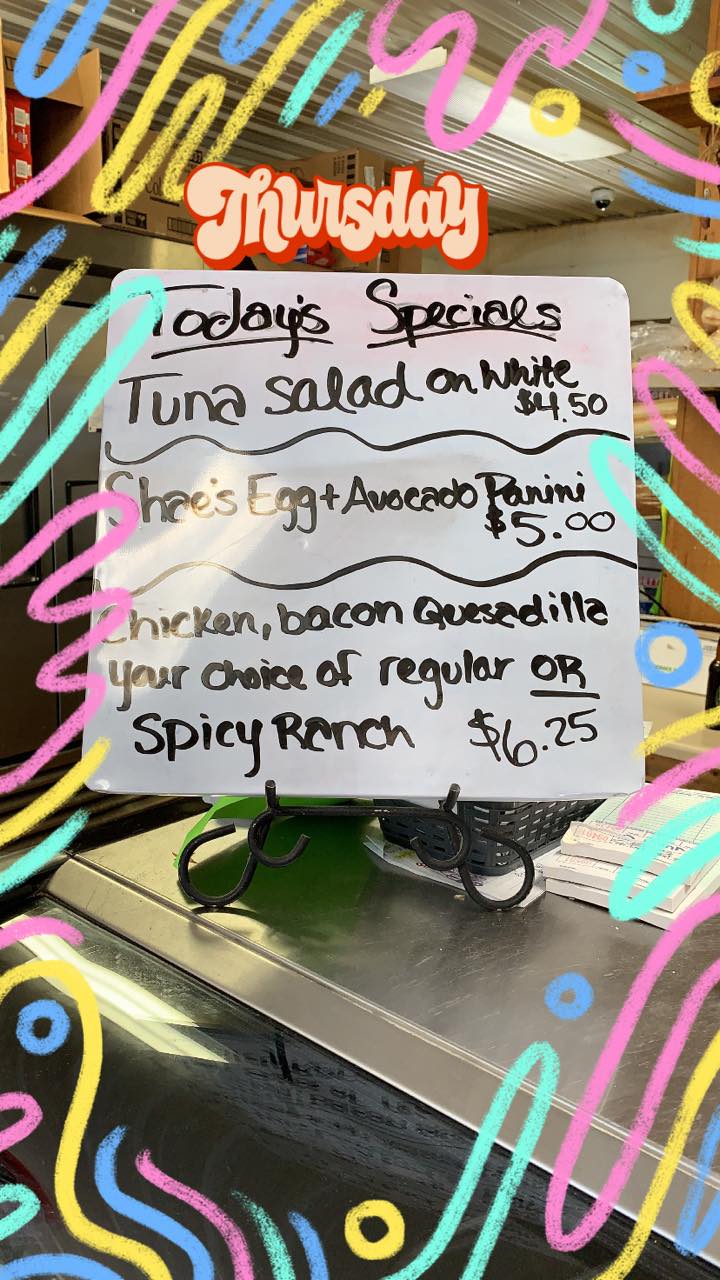 Thursday
Today's Specials
Tuna Salad on White
$4.50
Shae's Egg + Avocado Panini
$5.00
Chicken, bacon Quesadilla
your choice of regular OR
Spicy Ranch $6.25